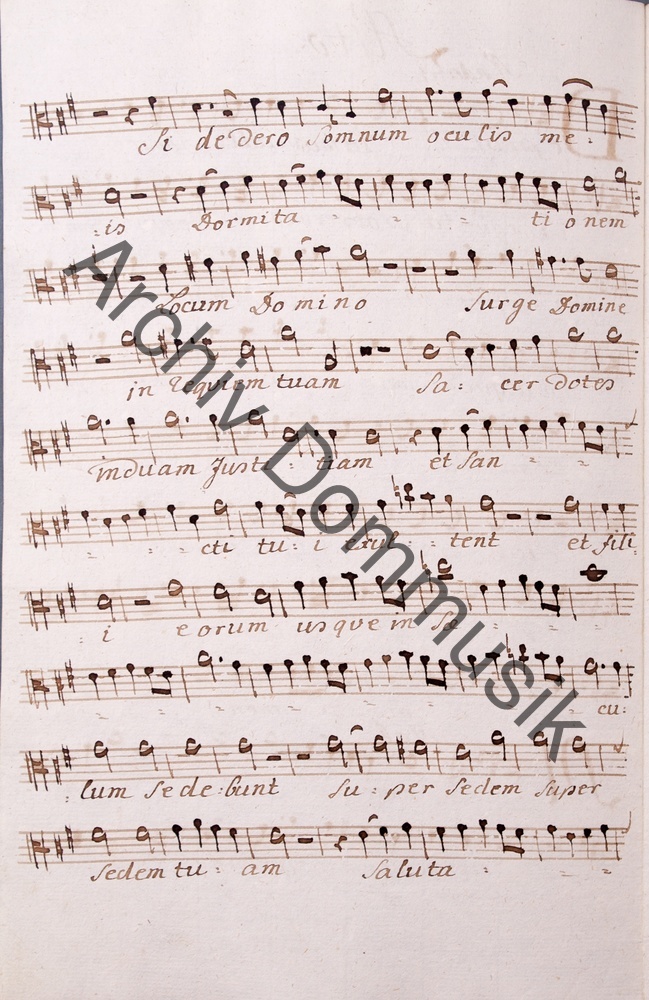 Si de dero Somnum oculis me :
: is Dormita - - - ti o nem
Locum Do mi no Surge Domine
in requiem tuam Sa : cer dotes
induam Justi : tiam et San = = =
= = = cti tu : i exul : tent et fili
: i eorum usque in Sae - -
= = = = = = = cu :
: lum Se de : bunt Su : per Sedem Super
Sedem tu : am Saluta = = =
Archiv Dommusik